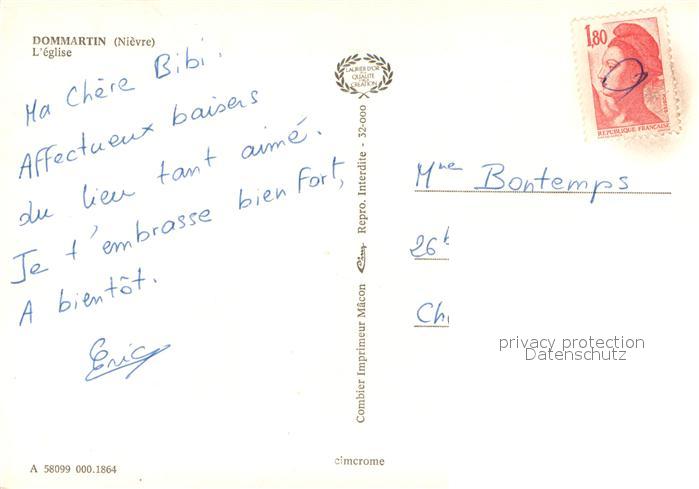 DOMMARTIN (Nièvre)
L'église
Ma Chère Bibi.
Affectueux baisers
du lieu tant aimé.
Je t'embrasse bien Fort,
A bientôt.
Eric
A 58099 000.1864
LAURIER D'OR
QUALITÉ
CRÉATION
Combier Imprimeur Mâcon Cim Repro. Interdite - 32-000
cimcrome
1,80
REPUBLIQUE FRANÇAISE
Mme Bontemps
26
privacy protection
Datenschutz